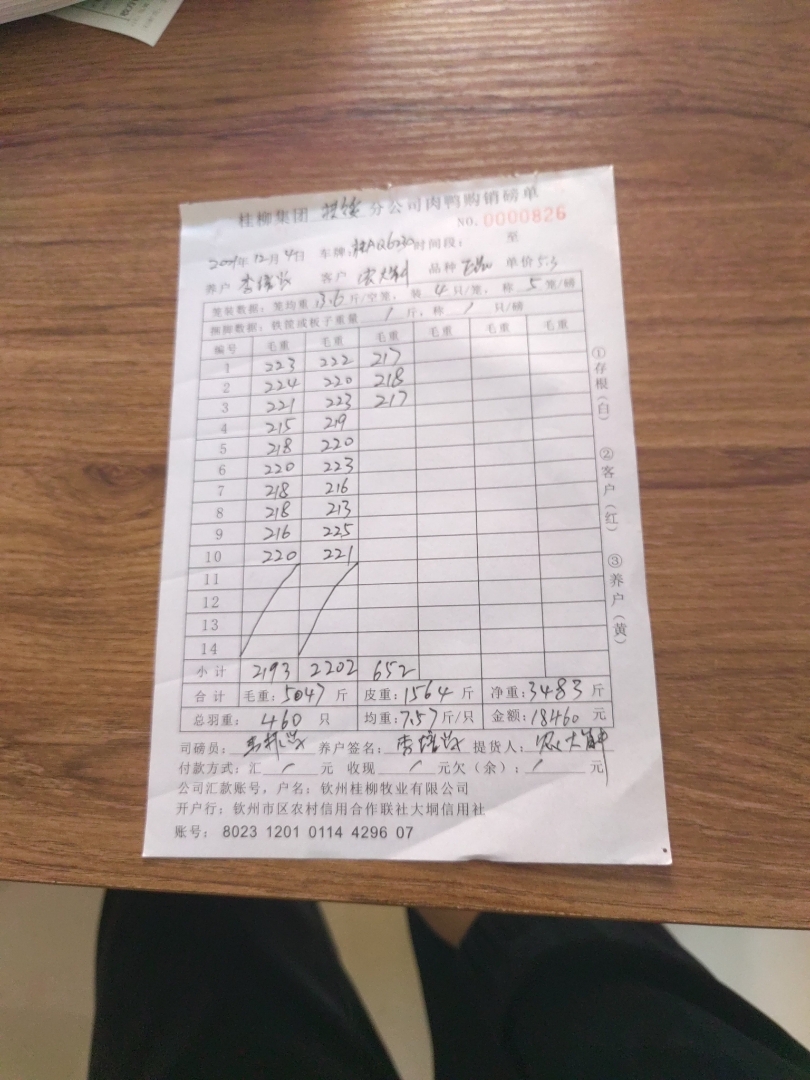 桂柳集团 分公司肉鸭购销磅单
NO. 0000826
12月4日 车牌: 桂AQ6230 时间段: 至
养户 客户 品种 单价 5.3
笼装数据: 笼均重 13.6 斤/空笼, 装 4 只/笼, 称 5 笼/磅
捆脚数据: 铁筐或板子重量 / 斤, 称 / 只/磅
编号 毛重 毛重 毛重 毛重 毛重 毛重
1 223 222 217
2 224 220 218
3 221 223 217
4 215 219
5 218 220
6 220 223
7 218 216
8 218 213
9 216 225
10 220 221
11
12
13
14
小计 2193 2202 652
合计 毛重: 5047 斤 皮重: 1564 斤 净重: 3483 斤
总羽重: 460 只 均重: 7.57 斤/只 金额: 18460 元
司磅员: 养户签名: 提货人:
付款方式: 汇 / 元 收现 / 元欠(余): / 元
公司汇款账号, 户名: 钦州桂柳牧业有限公司
开户行: 钦州市区农村信用合作联社大垌信用社
账号: 8023 1201 0114 4296 07
①存根(白) ②客户(红) ③养户(黄)